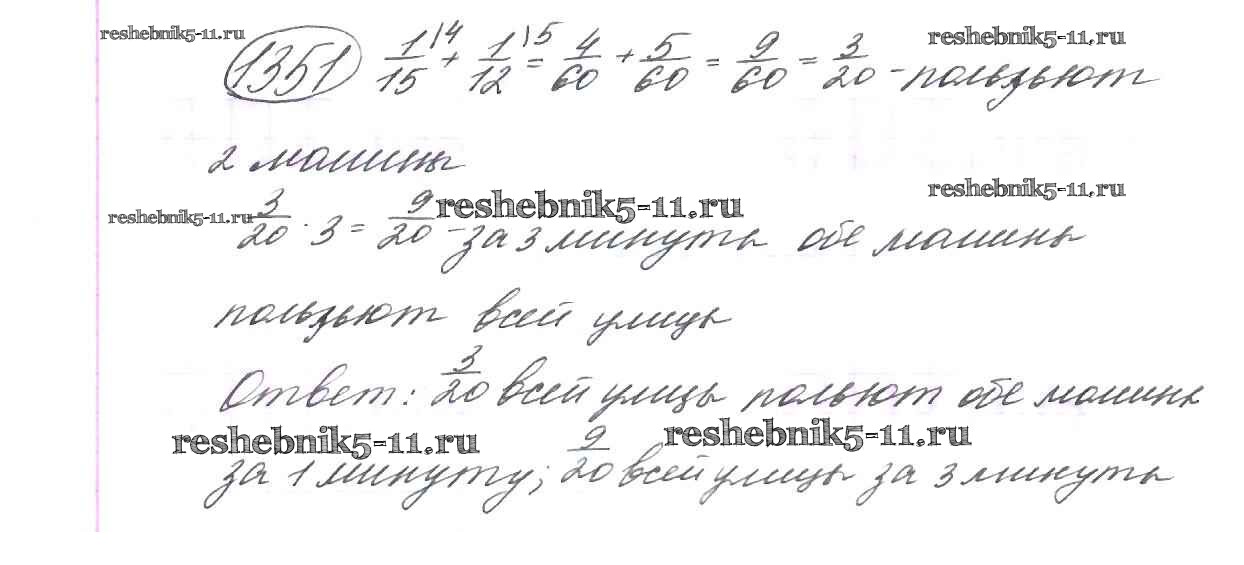 reshebnik5-11.ru
reshebnik5-11.ru
1351 1/15 |4 + 1/12 |5 = 4/60 + 5/60 = 9/60 = 3/20 - польют
2 машины
reshebnik5-11.ru
reshebnik5-11.ru
reshebnik5-11.ru
3/20 · 3 = 9/20 - за 3 минуты обе машины
польют всей улицы
Ответ: 3/20 всей улицы польют обе машины
reshebnik5-11.ru
reshebnik5-11.ru
за 1 минуту; 9/20 всей улицы за 3 минуты